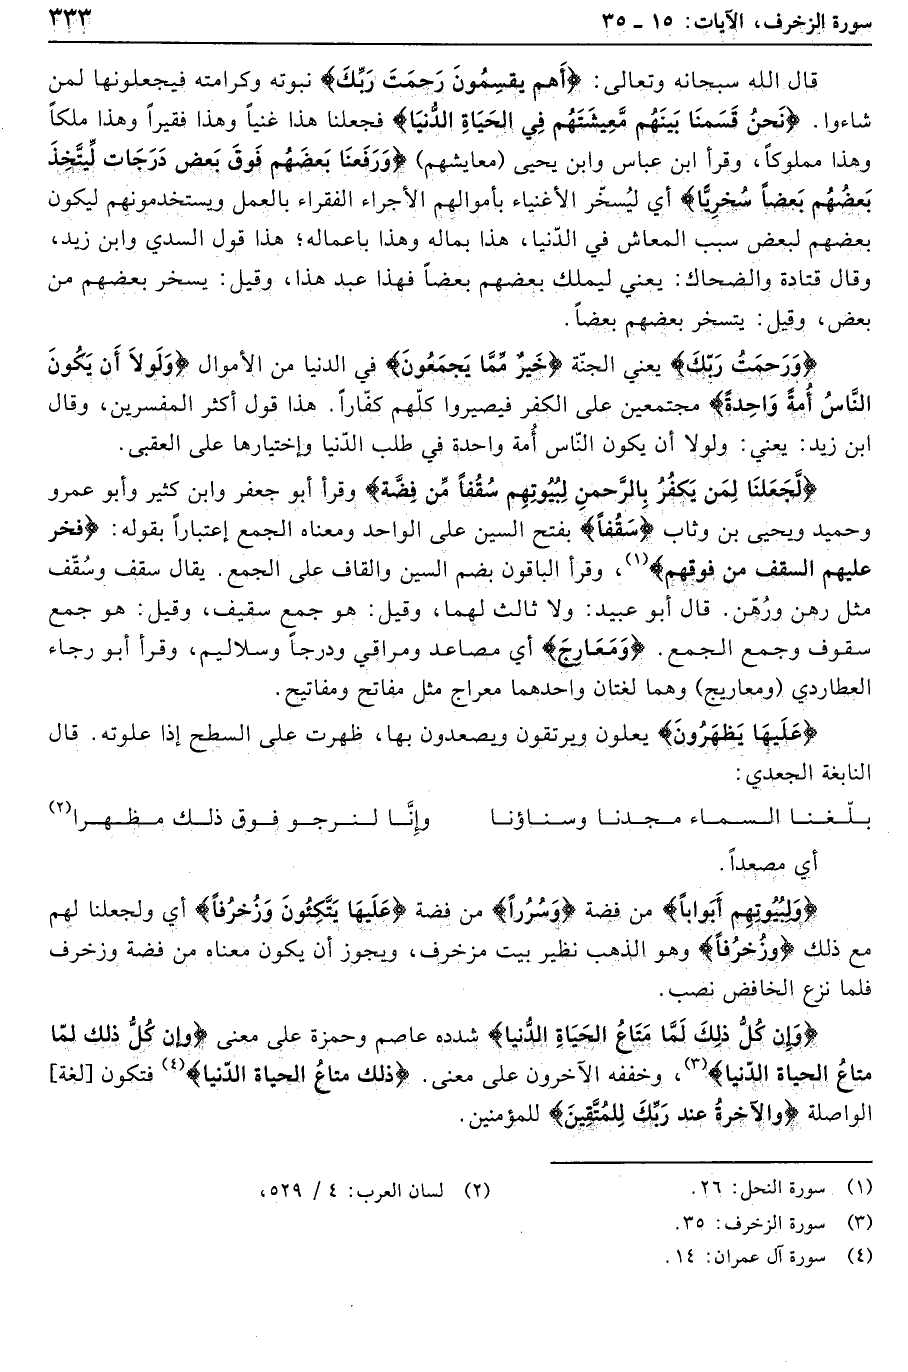 سورة الزخرف، الآيات: ١٥ ـ ٣٥
٣٣٣
قال الله سبحانه وتعالى: ﴿أَهم يقسِمُونَ رَحمَتَ رَبِّكَ﴾ نبوته وكرامته فيجعلونها لمن
شاءوا. ﴿نَحنُ قَسَمنَا بَينَهُم مَّعِيشَتَهُم فِي الحَيَاةِ الدُّنيَا﴾ فجعلنا هذا غنياً وهذا فقيراً وهذا ملكاً
وهذا مملوكاً، وقرأ ابن عباس وابن يحيى (معايشهم) ﴿وَرَفَعنَا بَعضَهُم فَوقَ بَعض دَرَجَات لِّيَتَّخِذَ
بَعضُهُم بَعضاً سُخرِيًّا﴾ أي ليُسخّر الأغنياء بأموالهم الأجراء الفقراء بالعمل ويستخدمونهم ليكون
بعضهم لبعض سبب المعاش في الدّنيا، هذا بماله وهذا باعماله؛ هذا قول السدي وابن زيد،
وقال قتادة والضحاك: يعني ليملك بعضهم بعضاً فهذا عبد هذا، وقيل: يسخر بعضهم من
بعض، وقيل: يتسخر بعضهم بعضاً.
﴿وَرَحمَتُ رَبِّكَ﴾ يعني الجنّة ﴿خَيرٌ مِّمَّا يَجمَعُونَ﴾ في الدنيا من الأموال ﴿وَلَولاَ أَن يَكُونَ
النَّاسُ أُمةً وَاحِدةً﴾ مجتمعين على الكفر فيصيروا كلّهم كفّاراً. هذا قول أكثر المفسرين، وقال
ابن زيد: يعني: ولولا أن يكون النّاس أُمة واحدة في طلب الدّنيا وإختيارها على العقبى.
﴿لَّجَعَلنَا لِمَن يَكفُرُ بِالرَّحمنِ لِبُيُوتِهِم سُقُفاً مِّن فِضَّة﴾ وقرأ أبو جعفر وابن كثير وأبو عمرو
وحميد ويحيى بن وثاب ﴿سَقُفاً﴾ بفتح السين على الواحد ومعناه الجمع إعتباراً بقوله: ﴿فخر
عليهم السقف من فوقهم﴾(١)، وقرأ الباقون بضم السين والقاف على الجمع. يقال سقف وسُقّف
مثل رهن ورُهّن. قال أبو عبيد: ولا ثالث لهما، وقيل: هو جمع سقيف، وقيل: هو جمع
سقوف وجمع الجمع. ﴿وَمَعَارِجَ﴾ أي مصاعد ومراقي ودرجاً وسلاليم، وقرأ أبو رجاء
العطاردي (ومعاريج) وهما لغتان واحدهما معراج مثل مفاتح ومفاتيح.
﴿عَلَيهَا يَظهَرُونَ﴾ يعلون ويرتقون ويصعدون بها، ظهرت على السطح إذا علوته. قال
النابغة الجعدي:
بلّغنا السماء مجدنا وسناؤنا وإنَّا لنرجو فوق ذلك مظهرا(٢)
أي مصعداً.
﴿وَلِبُيُوتِهِم أَبوَاباً﴾ من فضة ﴿وَسُرُراً﴾ من فضة ﴿عَلَيهَا يَتَّكِئُونَ وَزُخرُفاً﴾ أي ولجعلنا لهم
مع ذلك ﴿وزُخرُفاً﴾ وهو الذهب نظير بيت مزخرف، ويجوز أن يكون معناه من فضة وزخرف
فلما نزع الخافض نصب.
﴿وَإِن كُلُّ ذلِكَ لَمَّا مَتَاعُ الحَيَاةِ الدُّنيا﴾ شدده عاصم وحمزة على معنى ﴿وإن كُلُّ ذلك لمّا
متاعُ الحياة الدّنيا﴾(٣)، وخففه الآخرون على معنى. ﴿ذلك متاعُ الحياة الدّنيا﴾(٤) فتكون [لغة]
الواصلة ﴿والآخرةُ عند رَبِّكَ لِلمُتَّقِينَ﴾ للمؤمنين.
(١) سورة النحل: ٢٦. (٢) لسان العرب: ٤ / ٥٢٩،
(٣) سورة الزخرف: ٣٥.
(٤) سورة آل عمران: ١٤.